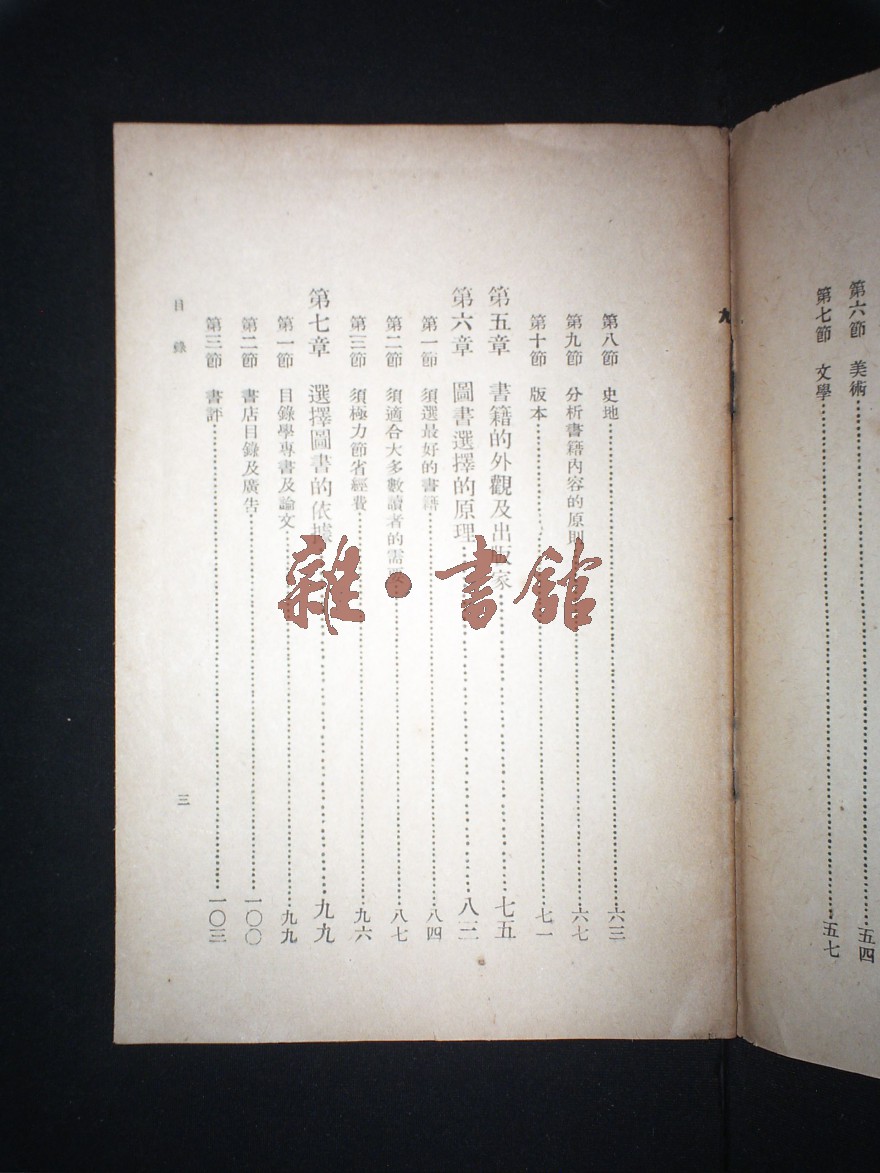 第六節 美術……五四
第七節 文學……五七
第八節 史地……六三
第九節 分析書籍內容的原則……六七
第十節 版本……七一
第五章 書籍的外觀及出版家……七五
第六章 圖書選擇的原理……八二
第一節 須選最好的書籍……八四
第二節 須適合大多數讀者的需要……八七
第三節 須極力節省經費……九六
第七章 選擇圖書的依據……九九
第一節 目錄學專書及論文……九九
第二節 書店目錄及廣告……一〇〇
第三節 書評……一〇三
目錄
三
雜·書館